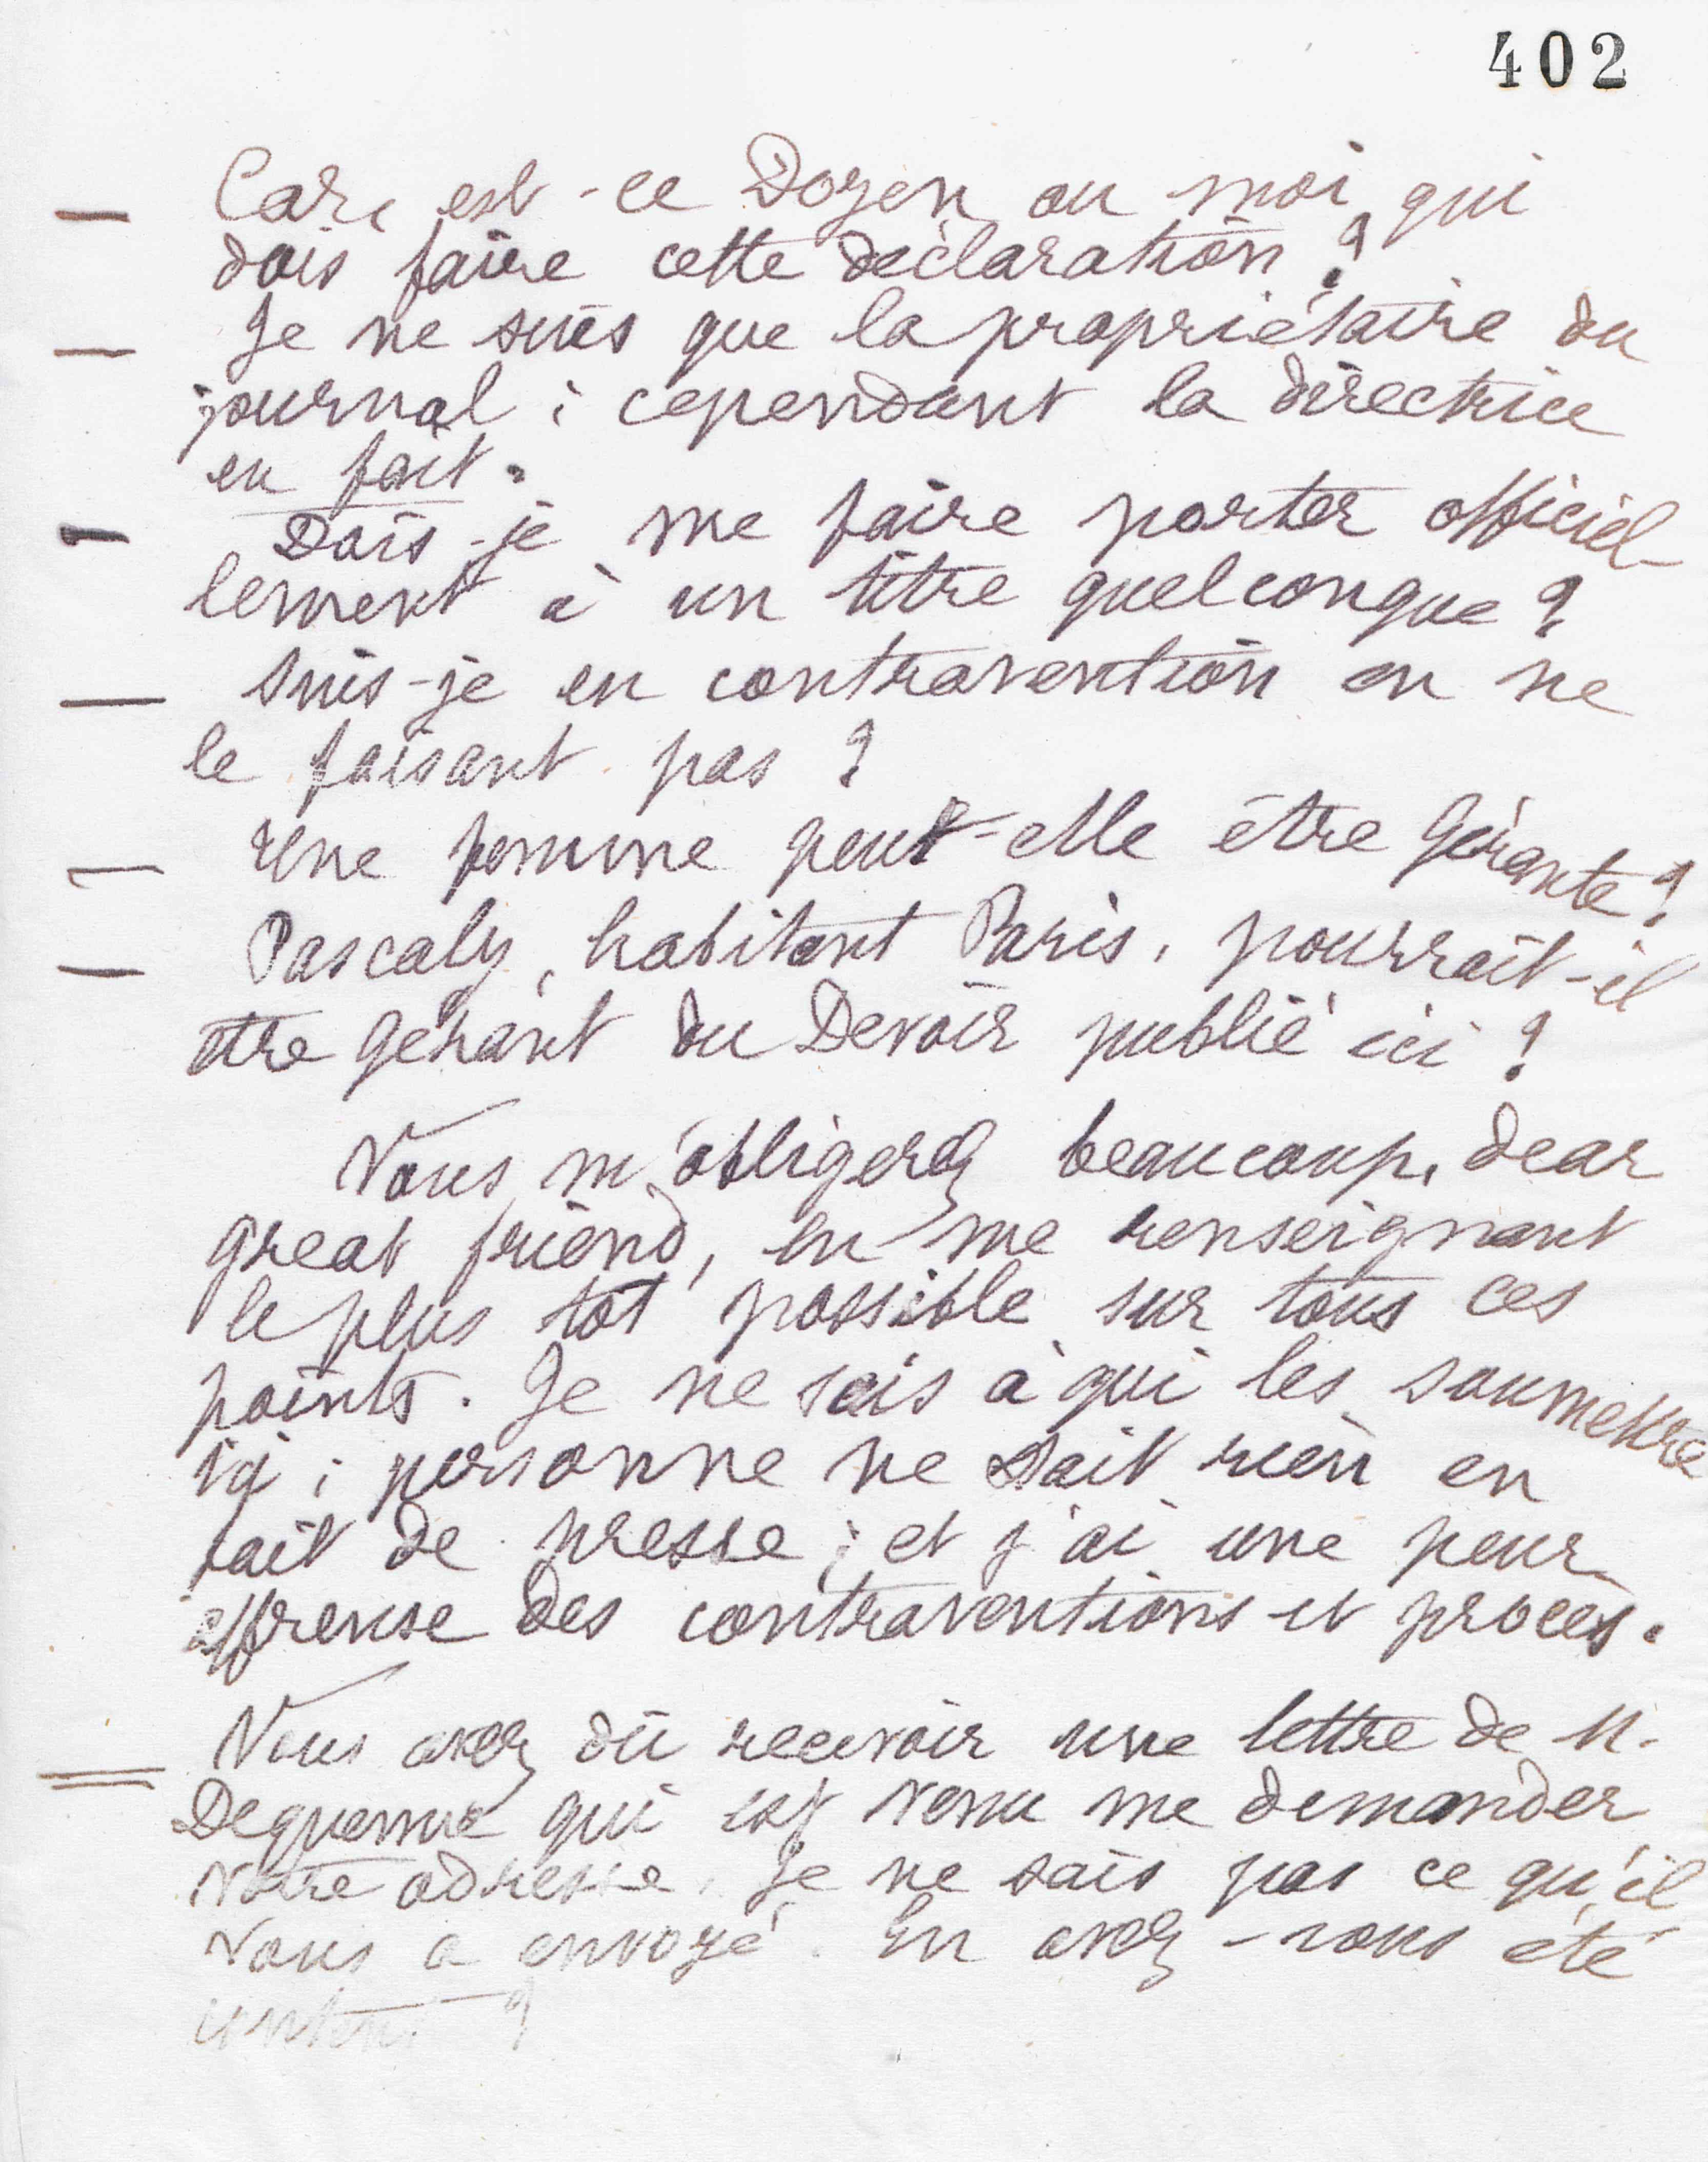 402
— Car, est-ce Doyen ou moi qui
dois faire cette déclaration ?
— Je ne suis que la propriétaire du
journal ; cependant la directrice
en fait.
— Dois-je me faire porter officiel-
lement à un titre quelconque ?
— Suis-je en contravention en ne
le faisant pas ?
— Une femme peut-elle être Gérante ?
— Pascaly, habitant Paris, pourrait-il
être gérant du Devoir publié ici ?
Vous m'obligerez beaucoup, dear
great friend, en me renseignant
le plus tôt possible sur tous ces
points. Je ne sais à qui les soumettre
ici ; personne ne sait rien en
fait de presse ; et j'ai une peur
affreuse des contraventions et procès.
= Vous avez dû recevoir une lettre de M.
Dequenne qui est venu me demander
votre adresse. Je ne sais pas ce qu'il
vous a envoyé. En avez-vous été
content ?